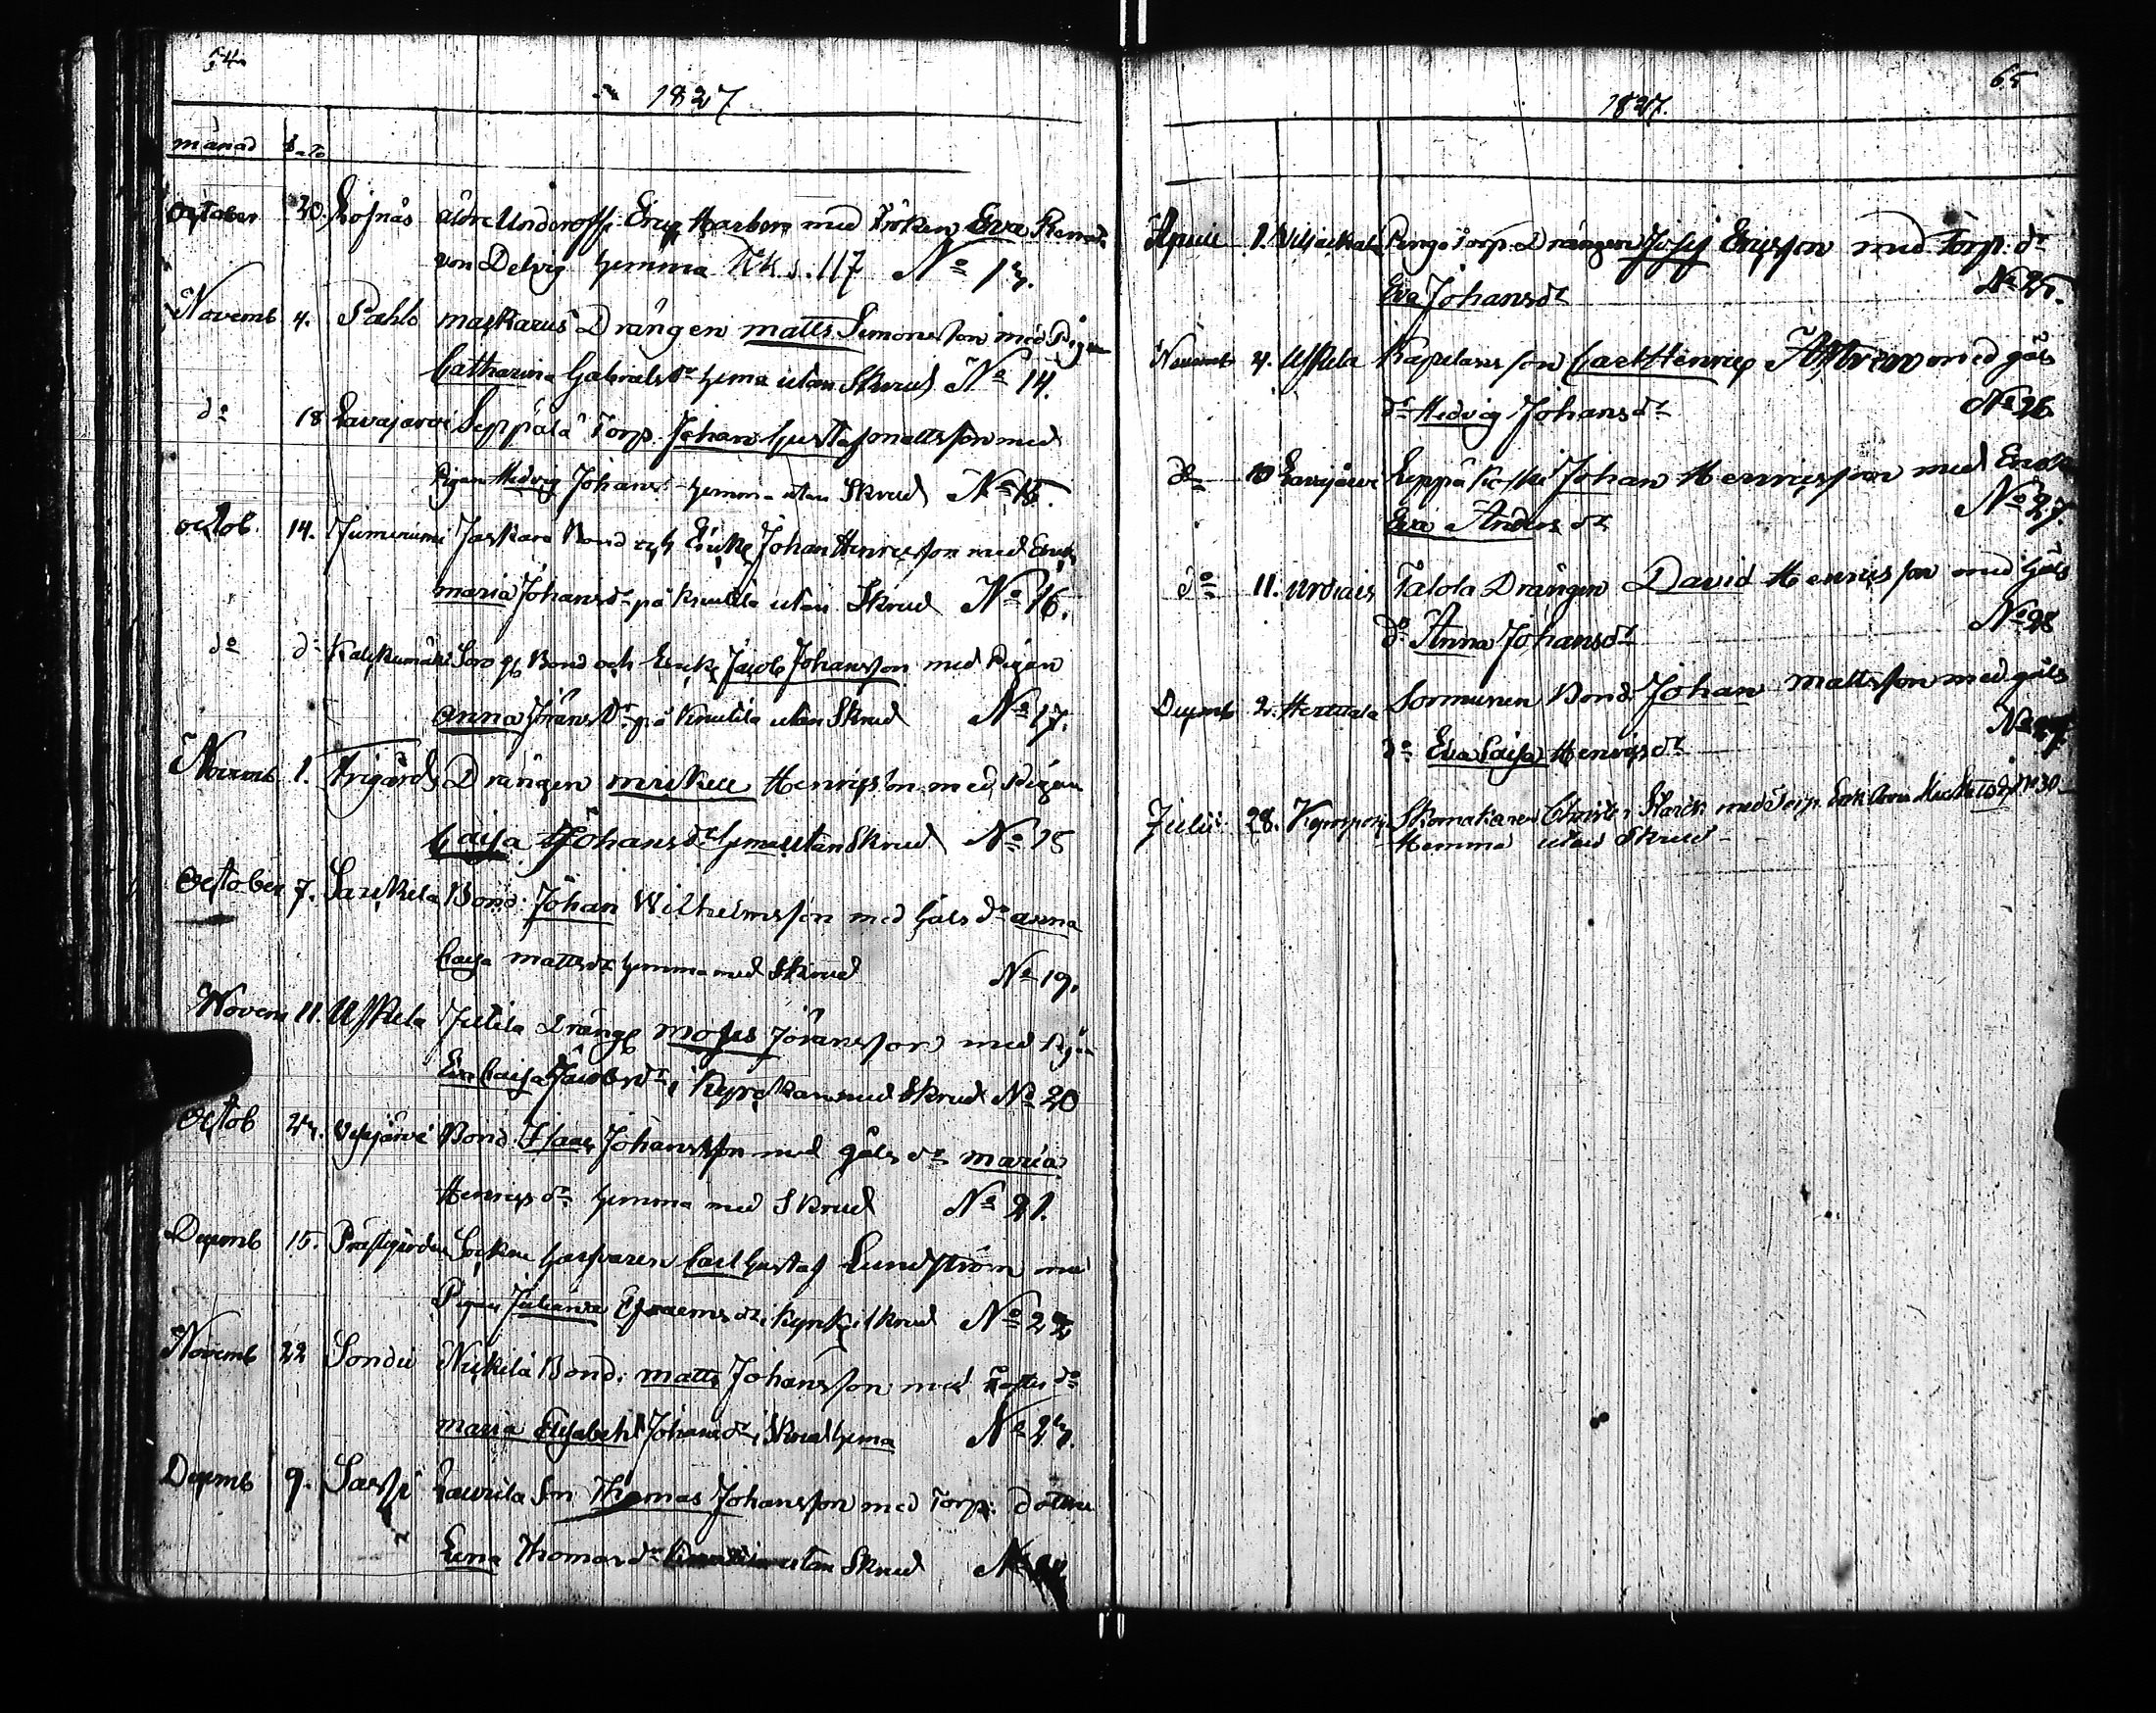 64.
1827
månad dato
October 20. Lofnäs äldre Underoff: Eric Harberg med Fröken Eva Renata
von Delvig hemma Kk s. 117 No 13.
Novemb 4. Pahlo maskarus Drängen matts Simonsson med Pigan
Catharina Gabrielsdr hema utan Skrud No 14.
do 18 Lavajärvi Seppälä Torp. Johan Gustaf mattsson med
Pigan Hedvig Johansdr hemma utan Skrud No 15.
octob. 14. Jumesniemi Jaskara Bond och Enkl Johan Henricsson med Enk
maria Johansdr på Knutila utan Skrud No 16.
do do Kalckunmäki Bond och Enkl Jacob Johansson med Pigan
anna Jöransdr på Knutila utan Skrud No 17.
Novemb 1. Frigårds Drängen mickell Henricsson med Pigan
Caisa Johansdr hema utan Skrud No 18
October 7. Sarkkila Bond: Johan Wilhelmsson med Gåls do anna
Caisa mattsdr hemma med Skrud No 19.
Novem 11. Uskela Jutila Dräng moses Jöransson med Pigan
Eva Caisa Jacobsdr i Kyrckan med Skrud No 20
Octob 23. Vesajärvi Bond: Isaac Johansson med gåls dr maria
Henricsdr hemma med Skrud No 21.
Decemb 15. Prästgården Sockne Garfvaren Carl Gustaf Lundström med
Pigan Juliana Efraemsdr i Kyrk skrud No 22
Novemb 22 Sondu Nickilä Bond: matts Johansson med Foster dr
maria Elisabeht Johansdr i Skrud hema No 23.
Decemb 9. Sassi Laurila Son Thomas Johansson med Torp: dottren
Lena Thomasdr utan Skrud No 24
65
1827.
April 1. Viljackala Penga Torp. Drängen Josef Ericsson med Torp: dr
Eva Johansdr No 25.
Novemb 4. Uskela Kapelans son Carl Henric med gåls
dr Hedvig Johansdr No 26
do 18 Lavajärvi Leppäkoski Johan Henricsson med Enkan
Eva Andersdr No 27.
do 11. Urdiais Talola Drängen David Henricsson med Gåls
dr Anna Johansdr No 28
Decemb 2. Herttuala Sormunen Bond: Johan Mattsson med gåls
dr Eva Caisa Henricsdr No 29
Julii 28. Kyrospohj Skomakaren Christer Starck med Torp. Enk Anna Mickelsdr No 30
Hemma utan Skrud